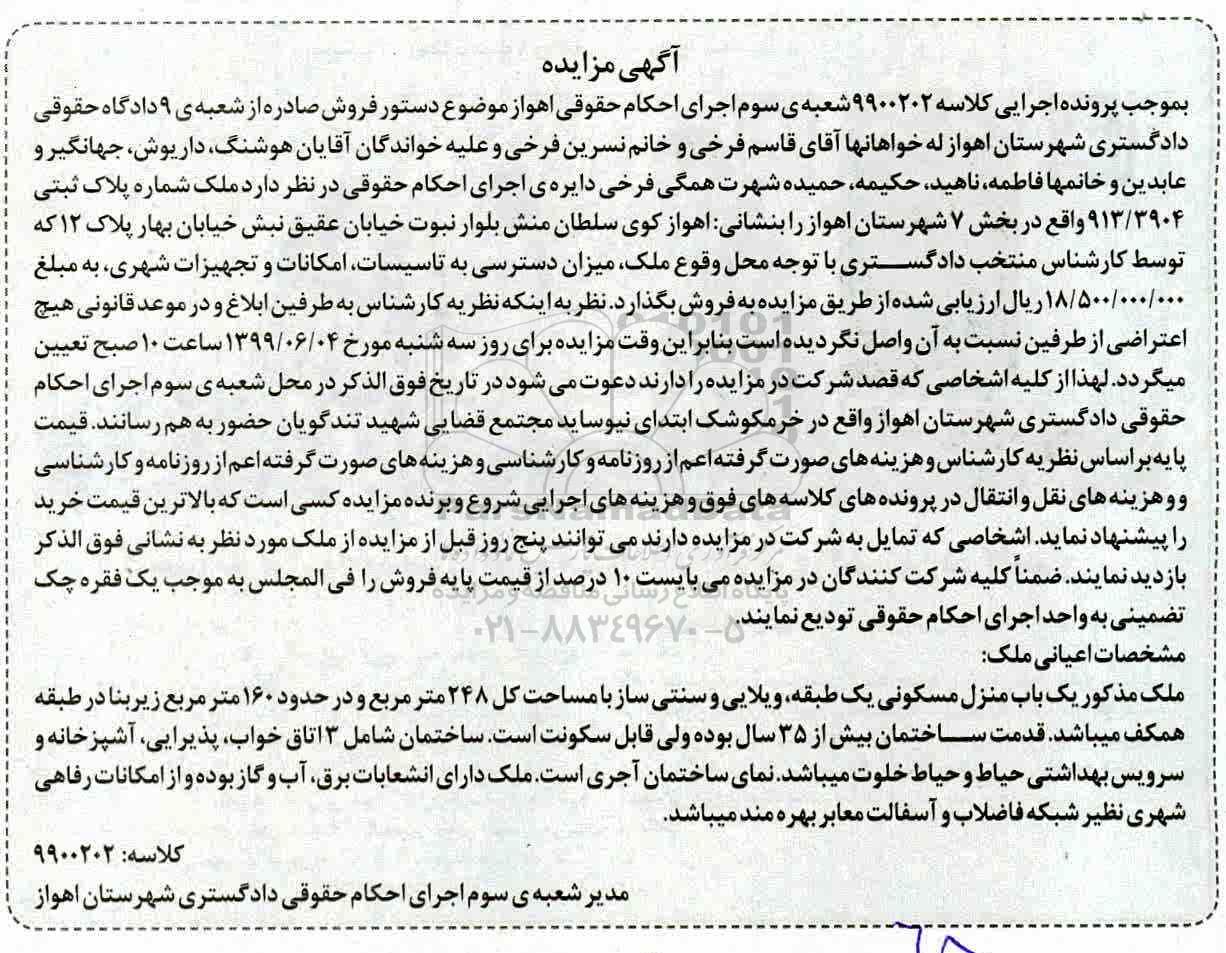 آگهی مزایده
بموجب پرونده اجرایی کلاسه ۹۹۰۰۲۰۲ شعبه ی سوم اجرای احکام حقوقی اهواز موضوع دستور فروش صادره از شعبه ی ۹ دادگاه حقوقی
دادگستری شهرستان اهواز له خواهانها آقای قاسم فرخی و خانم نسرین فرخی و علیه خواندگان آقایان هوشنگ، داریوش، جهانگیر و
عابدین و خانمها فاطمه، ناهید، حکیمه، حمیده شهرت همگی فرخی دایره ی اجرای احکام حقوقی در نظر دارد ملک شماره پلاک ثبتی
۹۱۳/۳۹۰۴ واقع در بخش ۷ شهرستان اهواز را بنشانی: اهواز کوی سلطان منش بلوار نبوت خیابان عقیق نبش خیابان بهار پلاک ۱۲ که
توسط کارشناس منتخب دادگستری با توجه محل وقوع ملک، میزان دسترسی به تاسیسات، امکانات و تجهیزات شهری، به مبلغ
۱۸/۵۰۰/۰۰۰/۰۰۰ ریال ارزیابی شده از طریق مزایده به فروش بگذارد. نظر به اینکه نظریه کارشناس به طرفین ابلاغ و در موعد قانونی هیچ
اعتراضی از طرفین نسبت به آن واصل نگردیده است بنابراین وقت مزایده برای روز سه شنبه مورخ ۱۳۹۹/۰۶/۰۴ ساعت ۱۰ صبح تعیین
میگردد. لهذا از کلیه اشخاصی که قصد شرکت در مزایده را دارند دعوت می شود در تاریخ فوق الذکر در محل شعبه ی سوم اجرای احکام
حقوقی دادگستری شهرستان اهواز واقع در خرمکوشک ابتدای نیوساید مجتمع قضایی شهید تندگویان حضور به هم رسانند. قیمت
پایه بر اساس نظریه کارشناس و هزینه های صورت گرفته اعم از روزنامه و کارشناسی و هزینه های صورت گرفته اعم از روزنامه و کارشناسی
و و هزینه های نقل و انتقال در پرونده های کلاسه های فوق و هزینه های اجرایی شروع و برنده مزایده کسی است که بالاترین قیمت خرید
را پیشنهاد نماید. اشخاصی که تمایل به شرکت در مزایده دارند می توانند پنج روز قبل از مزایده از ملک مورد نظر به نشانی فوق الذکر
بازدید نمایند. ضمناً کلیه شرکت کنندگان در مزایده می بایست ۱۰ درصد از قیمت پایه فروش را فی المجلس به موجب یک فقره چک
تضمینی به واحد اجرای احکام حقوقی تودیع نمایند.
پایگاه اطلاع رسانی مناقصه و مزایده
۰۲۱-۸۸۳۴۹۶۷۰-۵
مشخصات اعیانی ملک:
ملک مذکور یک باب منزل مسکونی یک طبقه، ویلایی و سنتی ساز با مساحت کل ۲۴۸ متر مربع و در حدود ۱۶۰ متر مربع زیربنا در طبقه
همکف میباشد. قدمت ساختمان بیش از ۳۵ سال بوده ولی قابل سکونت است. ساختمان شامل ۳ اتاق خواب، پذیرایی، آشپزخانه و
سرویس بهداشتی حیاط و حیاط خلوت میباشد. نمای ساختمان آجری است. ملک دارای انشعابات برق، آب و گاز بوده و از امکانات رفاهی
شهری نظیر شبکه فاضلاب و آسفالت معابر بهره مند میباشد.
کلاسه: ۹۹۰۰۲۰۲
مدیر شعبه ی سوم اجرای احکام حقوقی دادگستری شهرستان اهواز